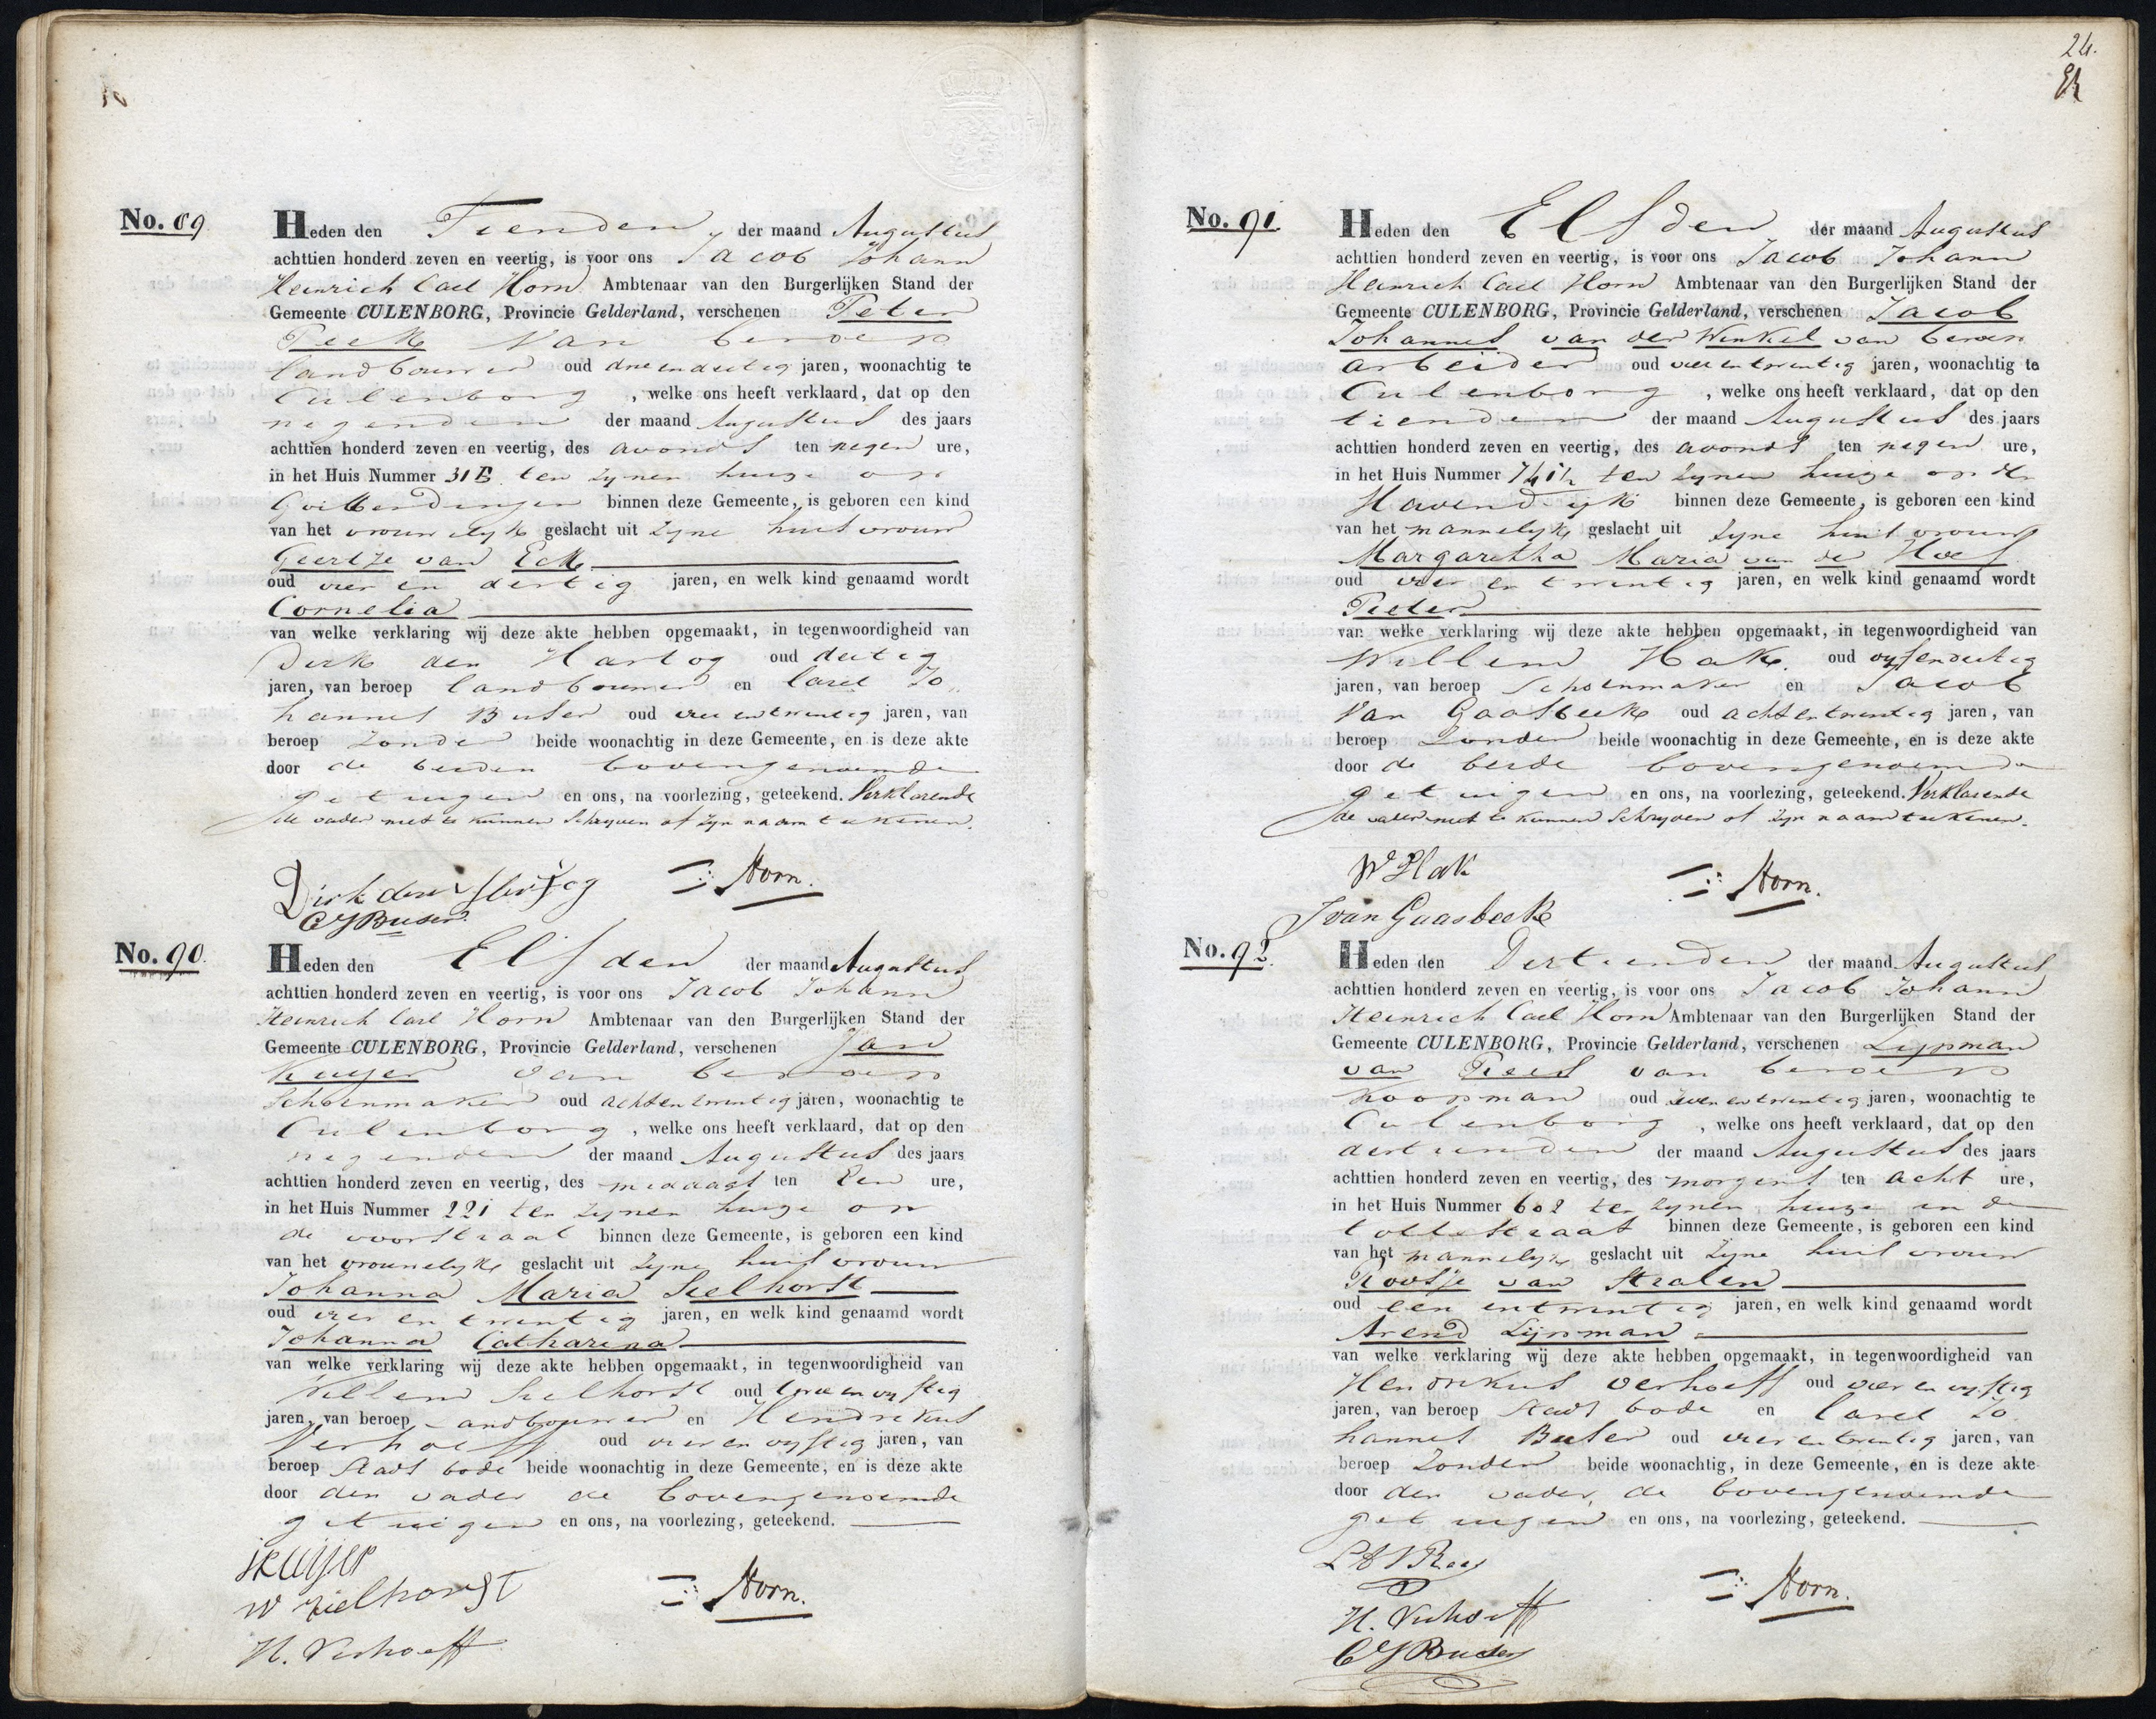 No. 89
Heden den Tienden der maand Augustus
achttien honderd zeven en veertig, is voor ons Jacob Johann
Heinrich Carl Horn Ambtenaar van den Burgerlijken Stand der
Gemeente CULENBORG, Provincie Gelderland, verschenen Peter
Peek Van beroep
landbouwer oud drie en dertig jaren, woonachtig te
Culenborg, welke ons heeft verklaard, dat op den
negenden der maand Augustus des jaars
achttien honderd zeven en veertig, des avonds ten negen ure,
in het Huis Nummer 31 E ten zynen huize op
binnen deze Gemeente, is geboren een kind
van het vrouwelyk geslacht uit zyne huisvrouw
Geertje van Eck
oud vier en dertig jaren, en welk kind genaamd wordt
Cornelia
van welke verklaring wij deze akte hebben opgemaakt, in tegenwoordigheid van
Dirk den Hartog oud dertig
jaren, van beroep landbouwer en Carel Jo„
hannes Buser oud vier en twintig jaren, van
beroep zonder beide woonachtig in deze Gemeente, en is deze akte
door de beiden bovengenoemde
getuigen en ons, na voorlezing, geteekend. Verklarende
de vader niet te kunnen schryven of zyn naam teekenen.
Dirk den Hertog Horn.
C J Buser
No. 90.
Heden den Elfden der maand Augustus
achttien honderd zeven en veertig, is voor ons Jacob Johann
Heinrich Carl Horn Ambtenaar van den Burgerlijken Stand der
Gemeente CULENBORG, Provincie Gelderland, verschenen Jan
Kuyer van beroep
Schoenmaker oud acht en twintig jaren, woonachtig te
Culenborg, welke ons heeft verklaard, dat op den
negenden der maand Augustus des jaars
achttien honderd zeven en veertig, des middags ten Een ure,
in het Huis Nummer 221 ten zynen huize op
de voorstraat binnen deze Gemeente, is geboren een kind
van het vrouwelyk geslacht uit zyne huisvrouw
Johanna Maria Seelhorst
oud vier en twintig jaren, en welk kind genaamd wordt
Johanna Catharina
van welke verklaring wij deze akte hebben opgemaakt, in tegenwoordigheid van
Willem Seelhorst oud twee en vyftig
jaren, van beroep landbouwer en Hendrikus
Verhoeff oud vier en vyftig jaren, van
beroep Stads bode beide woonachtig in deze Gemeente, en is deze akte
door den vader de bovengenoemde
getuigen en ons, na voorlezing, geteekend.
J Kuijer
W zielhorst Horn.
H. Verhoeff
24.
No. 91.
Heden den Elfden der maand Augustus
achttien honderd zeven en veertig, is voor ons Jacob Johann
Heinrich Carl Horn Ambtenaar van den Burgerlijken Stand der
Gemeente CULENBORG, Provincie Gelderland, verschenen Jacob
Johannes van der Winkel van beroep
arbeider oud vier en twintig jaren, woonachtig te
Culenborg, welke ons heeft verklaard, dat op den
tienden der maand Augustus des jaars
achttien honderd zeven en veertig, des avonds ten negen ure,
in het Huis Nummer ten zynen huize op de
Havendyk binnen deze Gemeente, is geboren een kind
van het mannelyk geslacht uit zyne huisvrouw
Margaretha Maria van der Hoes
oud vier en twintig jaren, en welk kind genaamd wordt
Pieter
van welke verklaring wij deze akte hebben opgemaakt, in tegenwoordigheid van
Willem Hak oud vyf en dertig
jaren, van beroep Schoenmaker en Jacob
Van Gaasbeek oud acht en twintig jaren, van
beroep Zonder beide woonachtig in deze Gemeente, en is deze akte
door de beide bovengenoemde
getuigen en ons, na voorlezing, geteekend. Verklarende
de vader niet te kunnen schryven of zyn naam teekenen.
W Hak Horn.
J van Gaasbeek
No. 92.
Heden den Dertienden der maand Augustus
achttien honderd zeven en veertig, is voor ons Jacob Johann
Heinrich Carl Horn Ambtenaar van den Burgerlijken Stand der
Gemeente CULENBORG, Provincie Gelderland, verschenen Lypman
van Rees van beroep
Koopman oud zeven en twintig jaren, woonachtig te
Culenborg, welke ons heeft verklaard, dat op den
dertienden der maand Augustus des jaars
achttien honderd zeven en veertig, des morgens ten acht ure,
in het Huis Nummer 602 ten zynen huize in de
tollestraat binnen deze Gemeente, is geboren een kind
van het mannelyk geslacht uit zyne huisvrouw
Roosje van Stralen
oud een en twintig jaren, en welk kind genaamd wordt
Arend Lijpman
van welke verklaring wij deze akte hebben opgemaakt, in tegenwoordigheid van
Hendrikus Verhoeff oud vier en vyftig
jaren, van beroep Stads bode en Carel Jo
hannes Buser oud vier en twintig jaren, van
beroep Zonder beide woonachtig, in deze Gemeente, en is deze akte
door den vader, de bovengenoemde
getuigen en ons, na voorlezing, geteekend.
Rees
H. Verhoeff Horn.
C J Buser